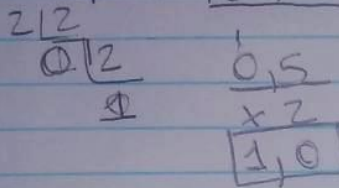 2 2
0 2
1
1
0,5
x 2
1,0